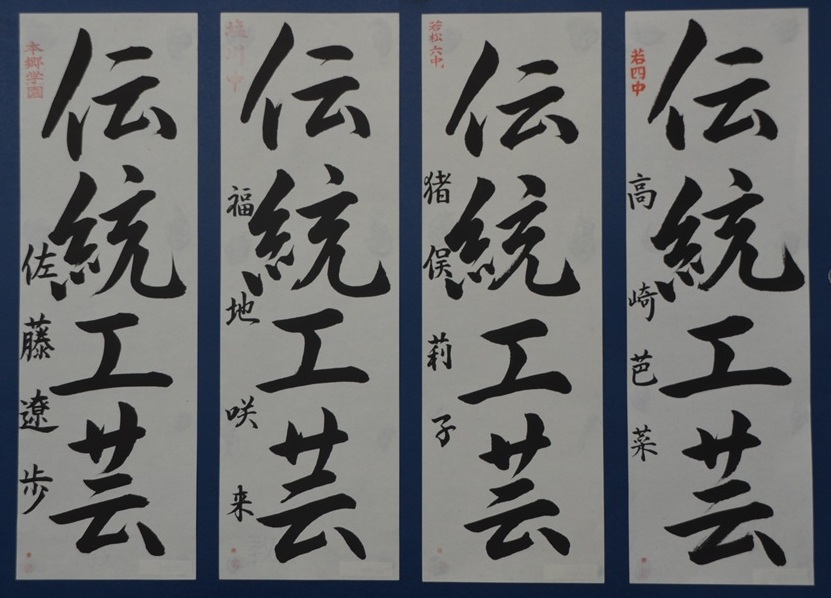 伝統工芸
若四中
高崎芭菜
伝統工芸
若松六中
猪俣莉子
伝統工芸
塩川中
福地咲来
伝統工芸
本郷学園
佐藤遼歩